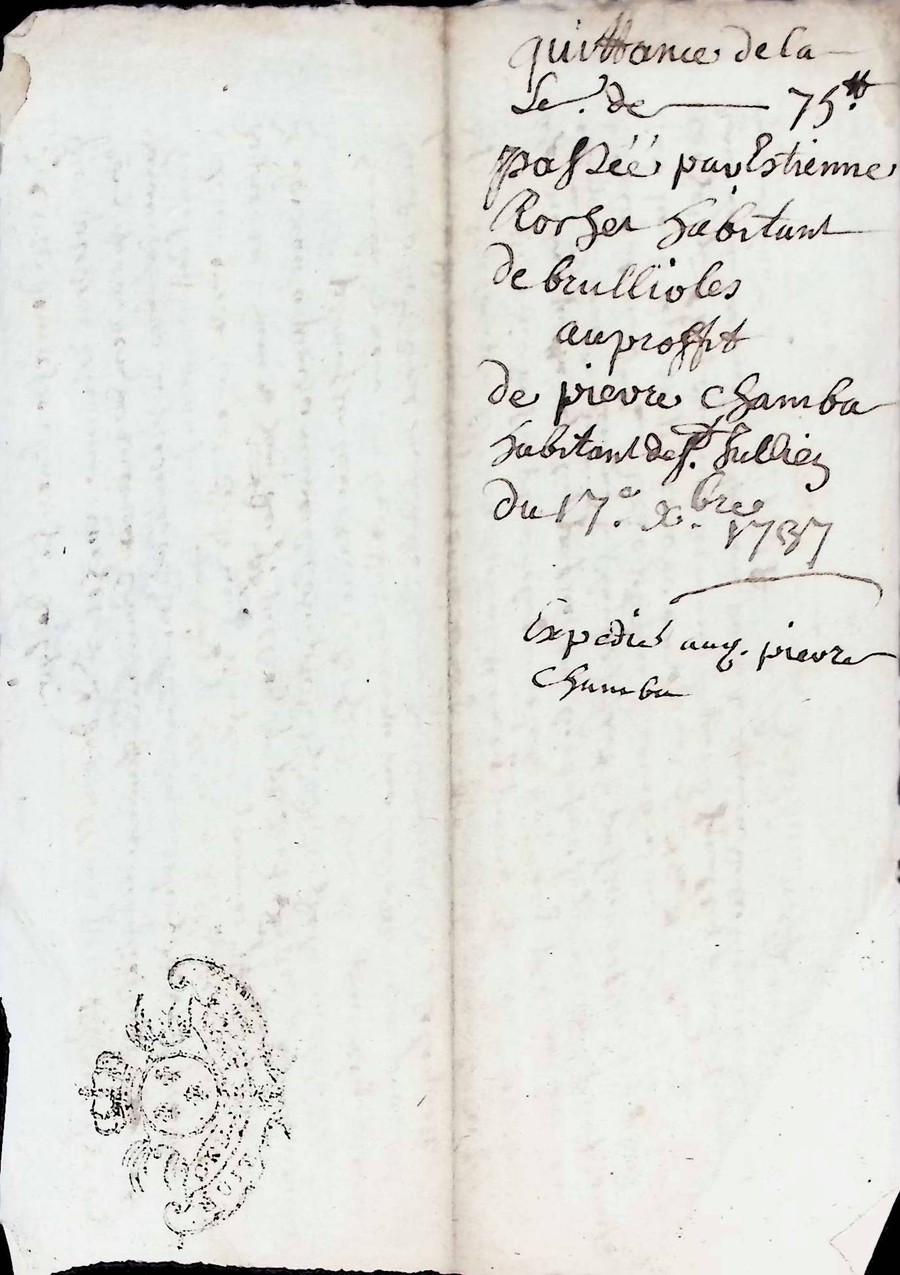 quittance de la
Se. de 75#.
passéé par Estienne
Rochet habitant
de brullioles
au proffit
de pierre Chamba
habitant de st. Jullien
du 17e. xbre
1737
Expedié auq. pierre
Chamba